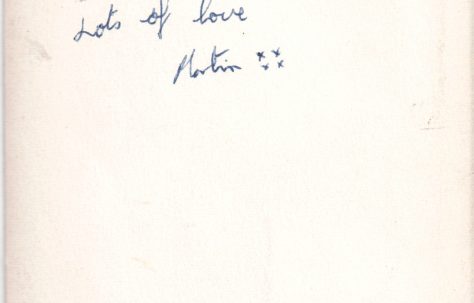 Lots of love
Martin xxxx